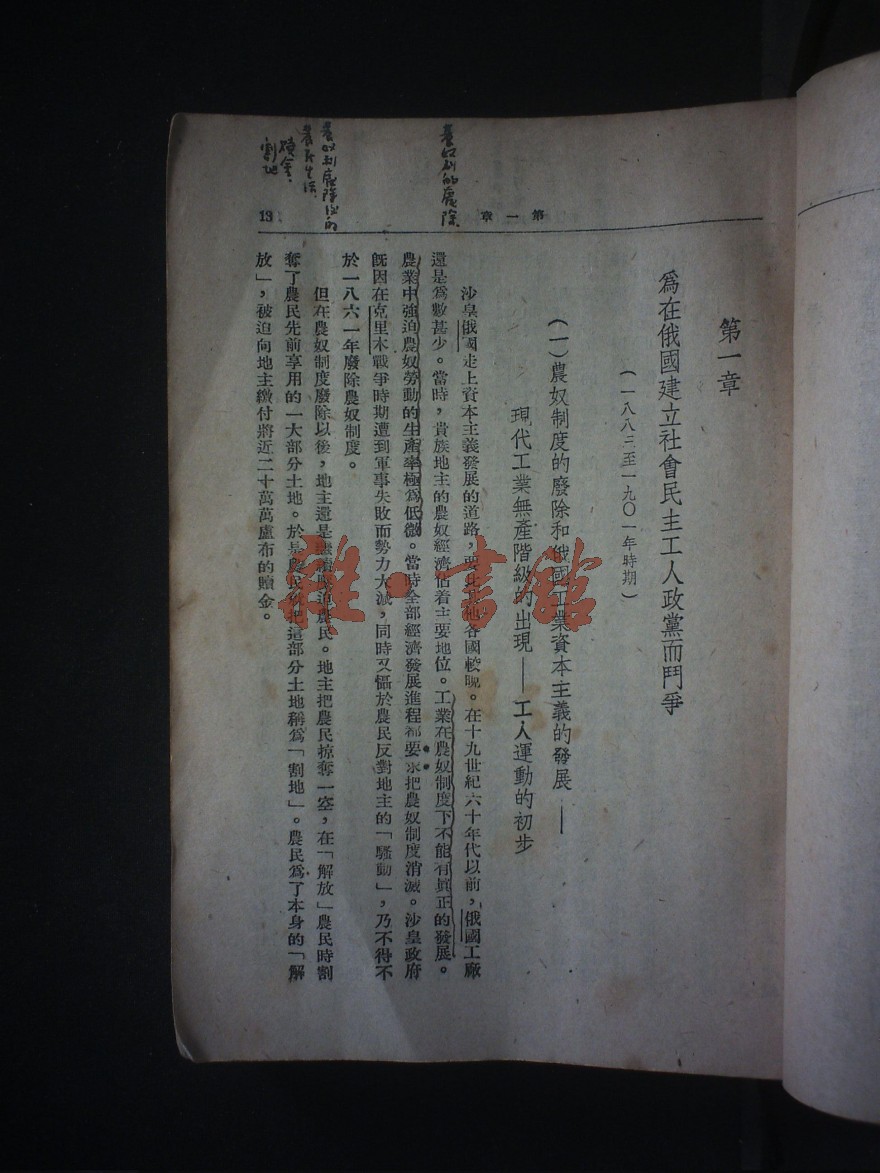 第一章
13
農奴制的廢除
農奴制廢除後的
農民生活
贖金、
割地
第一章
爲在俄國建立社會民主工人政黨而鬥爭
（一八八三至一九〇一年時期）
（一）農奴制度的廢除和俄國工業資本主義的發展——
現代工業無產階級的出現——工人運動的初步
沙皇俄國走上資本主義發展的道路，要比其他各國較晚。在十九世紀六十年代以前，俄國工廠
還是爲數甚少。當時，貴族地主的農奴經濟佔着主要地位。工業在農奴制度下不能有眞正的發展。
農業中強迫農奴勞動的生產率極爲低微。當時全部經濟發展進程都要求把農奴制度消滅。沙皇政府
旣因在克里木戰爭時期遭到軍事失敗而勢力大減，同時又懾於農民反對地主的「騷動」，乃不得不
於一八六一年廢除農奴制度。
但在農奴制度廢除以後，地主還是繼續壓迫農民。地主把農民掠奪一空，在「解放」農民時割
奪了農民先前享用的一大部分土地。於是農民就把這部分土地稱爲「割地」。農民爲了本身的「解
放」，被迫向地主繳付將近二十萬萬盧布的贖金。
雜·書館